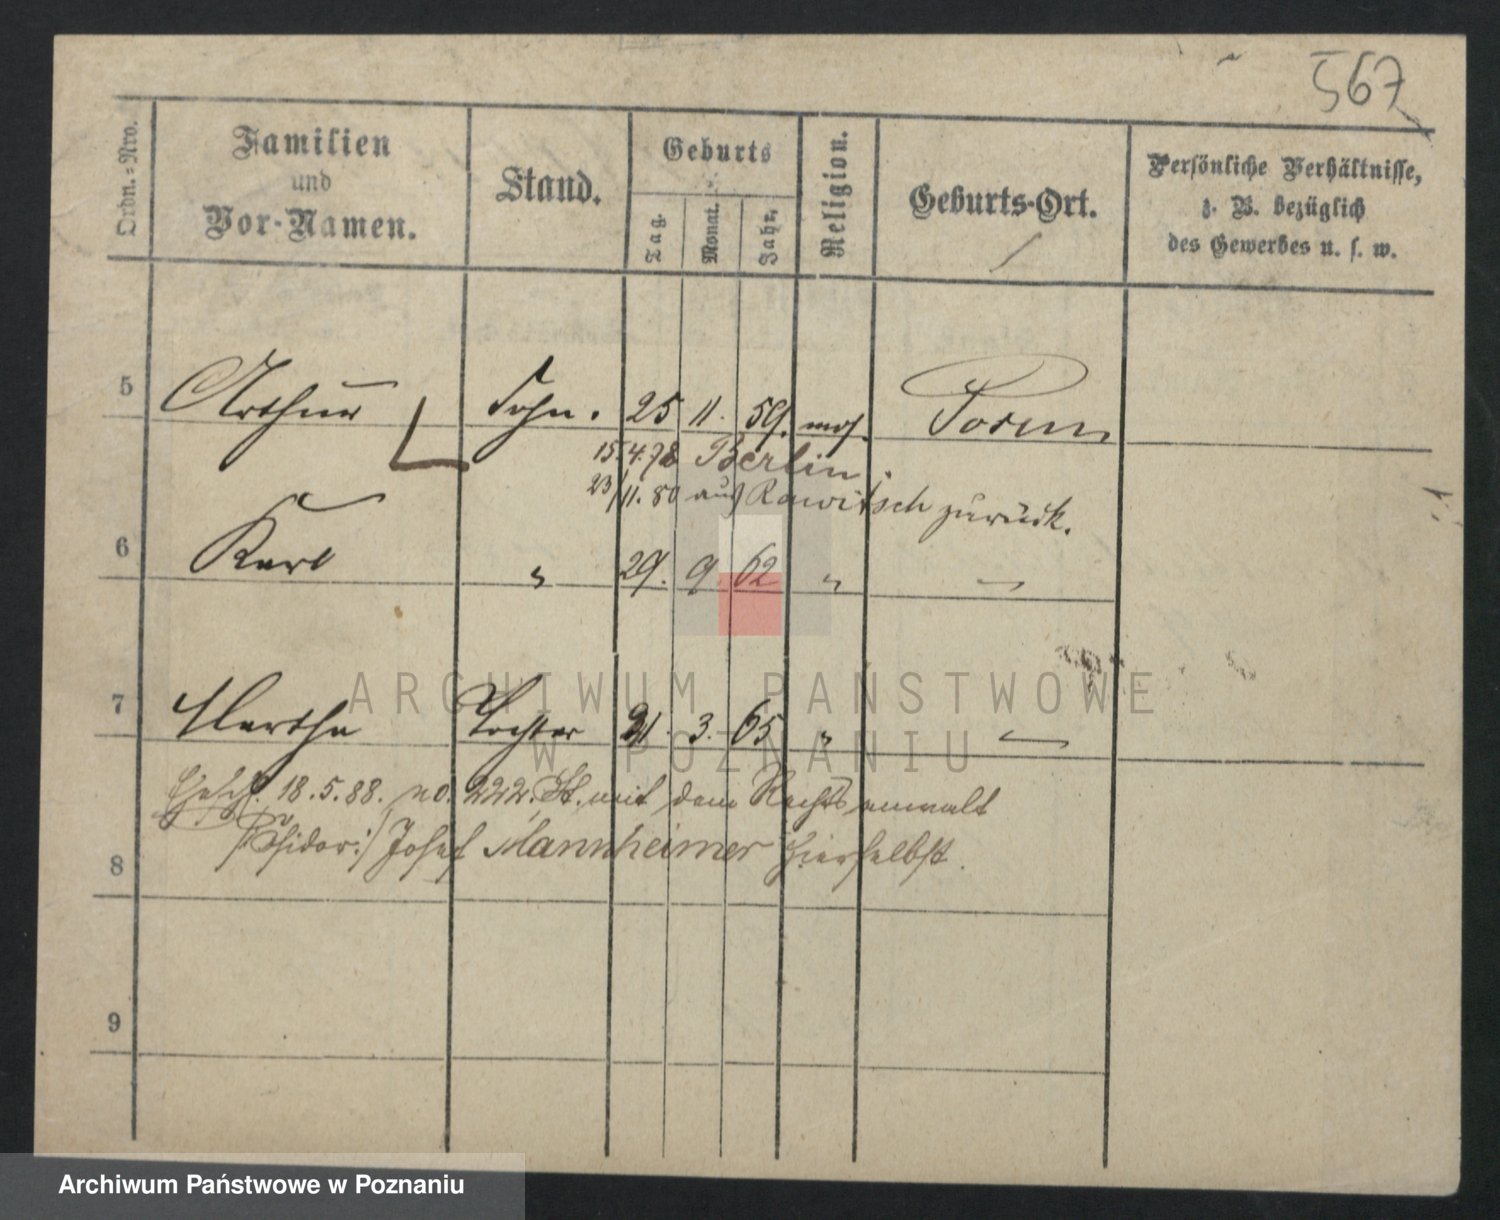 567
Ordn.=Nro.
Familien
und
Vor-Namen.
Stand.
Geburts
Tag.
Monat.
Jahr.
Religion.
Geburts-Ort.
Persönliche Verhältnisse,
z. B. bezüglich
des Gewerbes u. s. w.
5 Arthur Sohn. 25 11. 59. mos. Posen
15.4.78 Berlin.
23/11. 80 aus Rawitsch zurück.
6 Karl " 29. 9. 62 " "
7 Martha Tochter 21. 3. 65 " "
18.5.88. no. 222. St. mit dem Rechtsanwalt
/:Isidor:/ Josef Mannheimer hierselbst.
8
9
ARCHIWUM PAŃSTWOWE
W POZNANIU
Archiwum Państwowe w Poznaniu